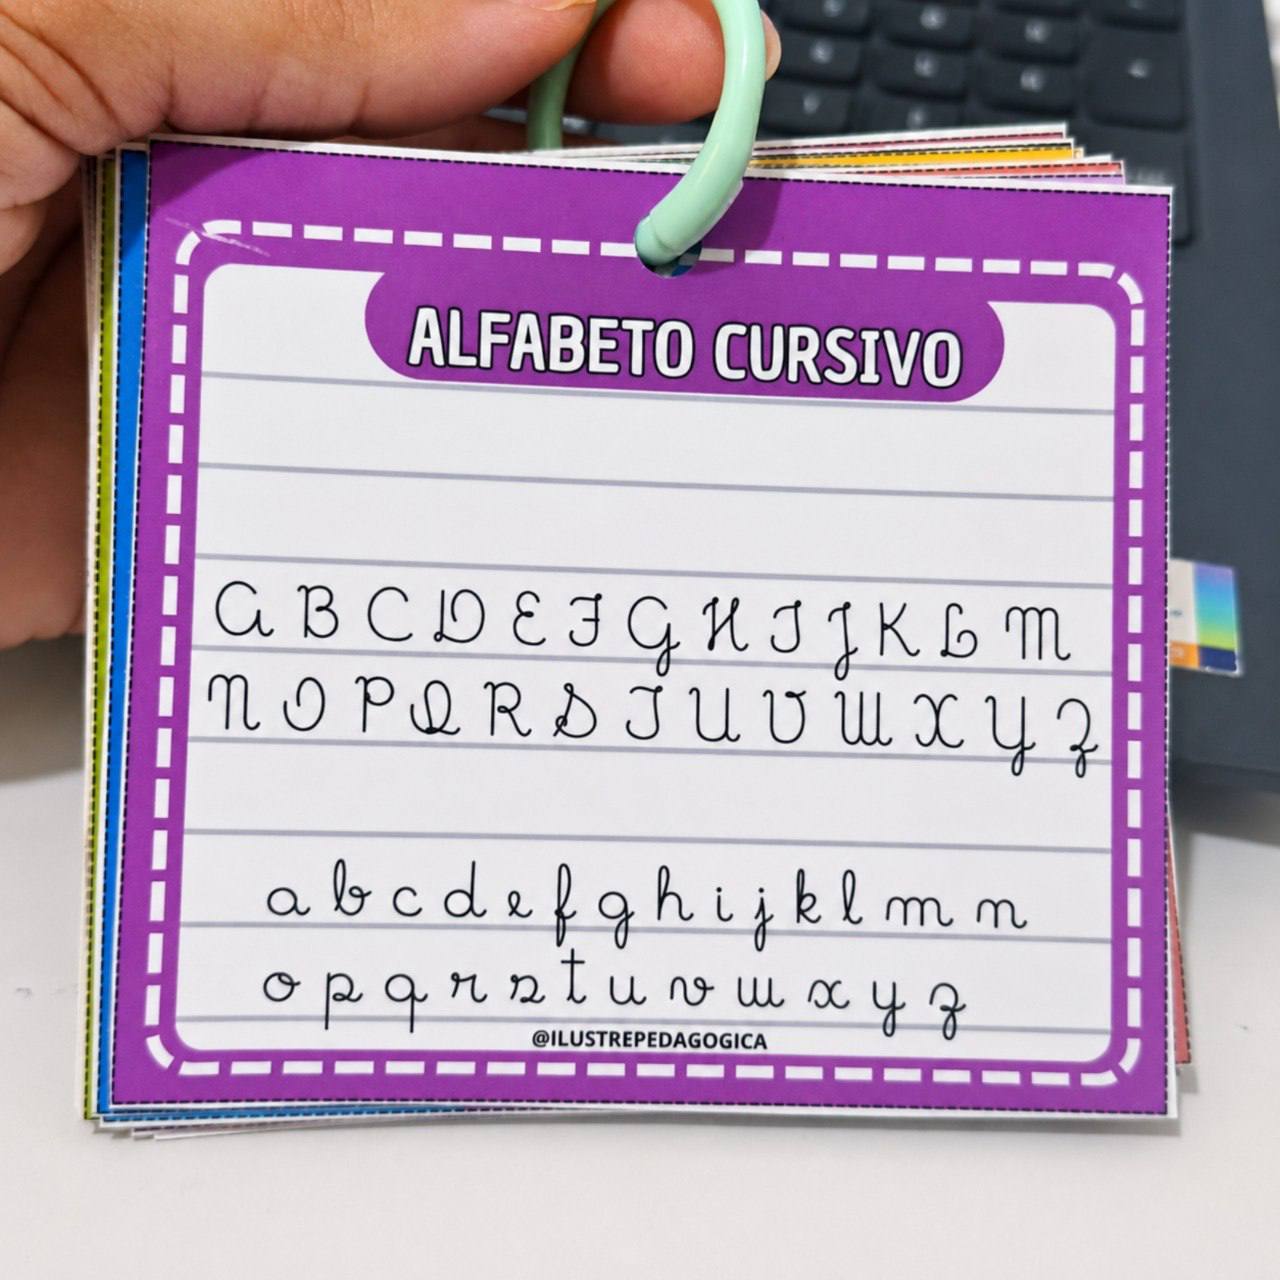 ALFABETO CURSIVO
A B C D E F G H I J K L M
N O P Q R S T U V W X Y Z
a b c d e f g h i j k l m n
o p q r s t u v w x y z
@ILUSTREPEDAGOGICA